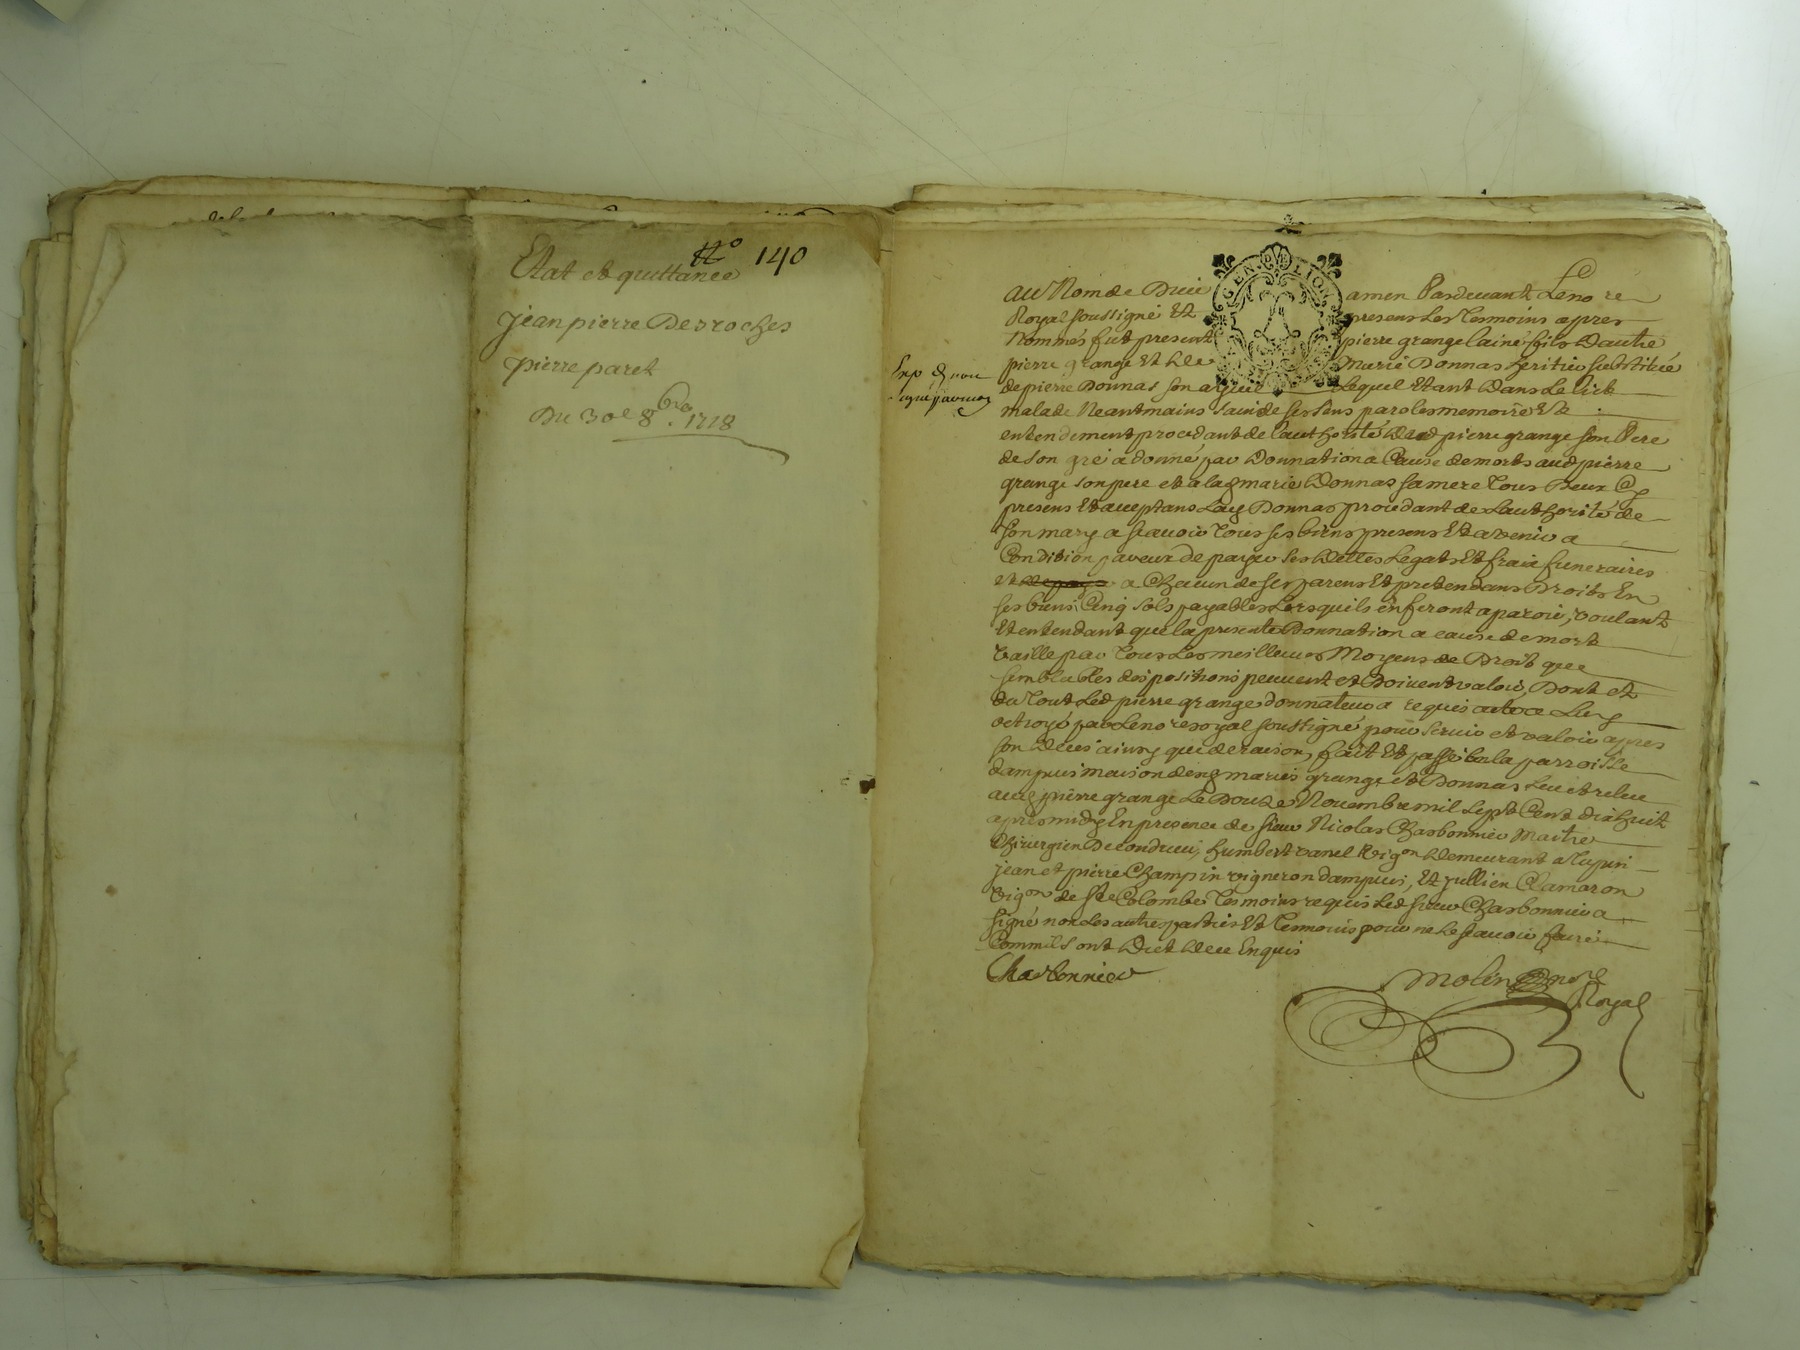 N° 140
Etat et quittance
jean pierre Desroches
pierre paret
Du 30e 8bre 1718
GEN. D LION
au Nom de Dieu amen Pardevant Le no re
Royal soussigné Et presens Les Tesmoins apres
Nommés fut present pierre grange laine fils d'autre
pierre grange et de Marie Donnas heritier substitué
de pierre Donnas son ayeul Lequel Etant dans Le lict
malade Neantmains sain de ses sens paroles memoire Et
entendement procedant de l'authorité dud pierre grange son Pere
de son gré a donné par Donnation a Cause de morts aud pierre
grange son pere et a lad marie Donnas sa mere Tous Deux cy
presens Et acceptans Lad Donnas procedant de L'authorité de
son mary a scavoir Tous ses biens presens Et avenir a
Condition par eux de payer ses dettes Legats Et fraix funeraires
et a Chacun de ses parens Et pretendans Droits En
ses biens Cinq sols payables Lorsquils en feront aparoir, voulant
Et entendant que la presente Donnation a cause de mort
vaille par Tous Les meilleurs Moyens de Droit que
semblables dispositions peuvent et Doivent valoir, Dont et
du Tout Led pierre grange donnateur a requis acte a Luy
octroyé par Le no re royal soussigné pour servir et valoir apres
son deces ainsy que de raison, fait Et passé En la parroisse
dampuis maison desd mariés grange et Donnas Leu et releu
aud pierre grange Le Douze Novembre mil sept Cent dixhuit
apres midy En presence de sieur Nicolas Charbonnier Maitre
Chirurgien De condrieu, humbert vanel vigon demeurant a Tupin
jean et pierre Champin vigneron dampuis, Et jullien Clamaron
vigon de Ste Colombe Tesmoins requis Led sieur Charbonnier a
signé non Les autres parties Et Tesmoins pour ne Le scavoir faire
Comm'ils ont Dict de ce Enquis
Charbonnier
Molin no re
Royal